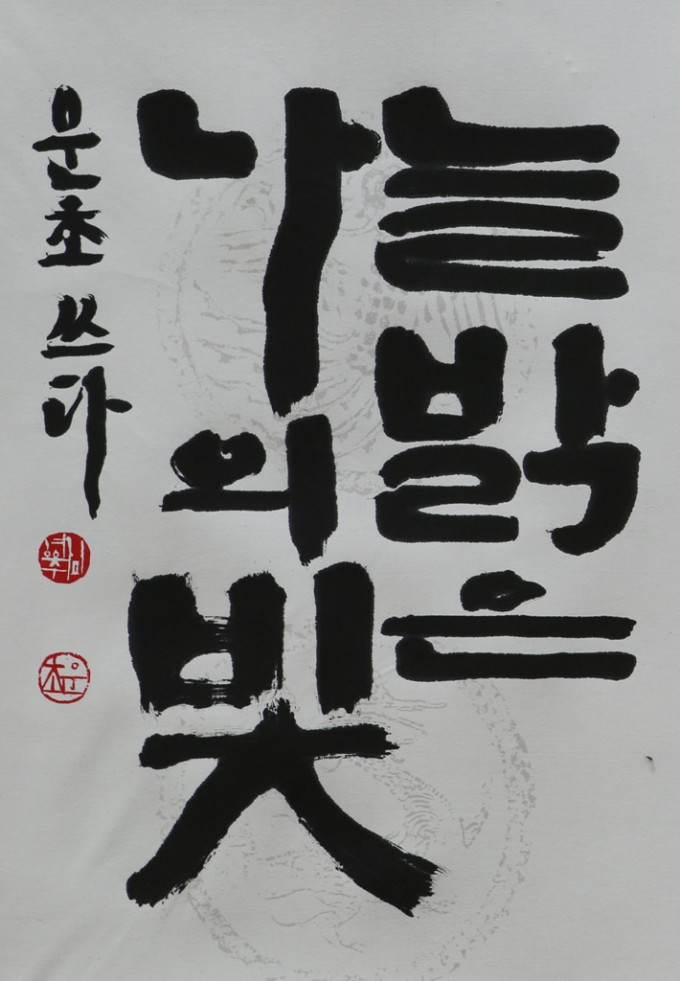 늘 밝은
나의 빛
운초 쓰다
운초